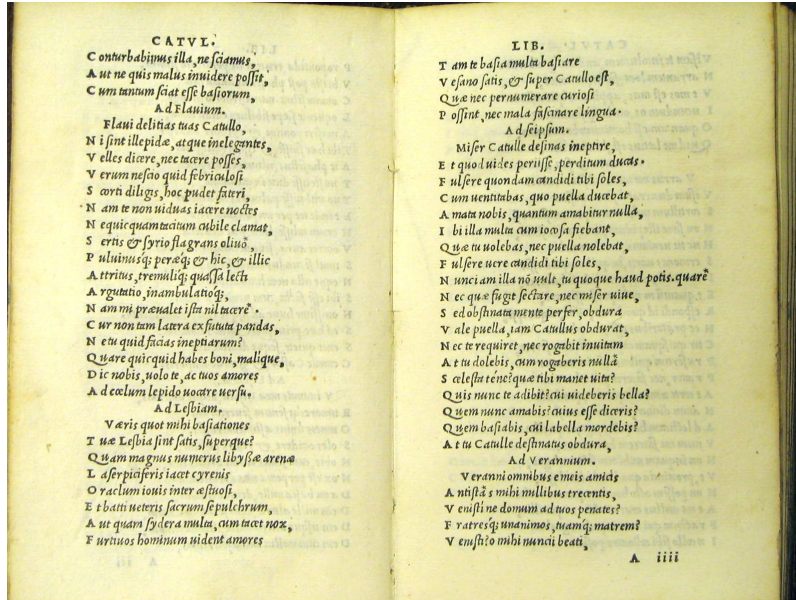 CATVL.
C onturbabimus illa, ne sciamus,
A ut ne quis malus inuidere possit,
C um tantum sciat esse basiorum,
Ad Flauium.
Flaui delitias tuas Catullo,
N i sint illepidæ, atque inelegantes,
V elles dicere, nec tacere posses,
V erum nescio quid febriculosi
S corti diligis, hoc pudet fateri,
N am te non uiduas iacere noctes
N equicquam tacitum cubile clamat,
S ertis & syrio flagrans oliuō,
P uluinusq; peræq; & hic, & illic
A ttritus, tremuliq; quassa lecti
A rgutatio, inambulatioq;,
N am mi præualet ista nil tacerē.
C ur non tam latera exfututa pandas,
N e tu quid facias ineptiarum?
Q uare quicquid habes boni, malique,
D ic nobis, uolo te, ac tuos amores
A d cœlum lepido uocare uersu.
Ad Lesbiam.
Væris quot mihi basiationes
T uæ Lesbia sint satis, superque?
Q uam magnus numerus libyssæ arenæ
L aserpiciferis iacet cyrenis
O raclum iouis inter æstuosi,
E t batti ueteris sacrum sepulchrum,
A ut quam sydera multa, cum tacet nox,
F urtiuos hominum uident amores
LIB.
T am te basia multa basiare
V esano satis, & super Catullo est,
Q uæ nec pernumerare curiosi
P ossint, nec mala fascinare lingua.
Ad seipsum.
Miser Catulle desinas ineptire,
E t quod uides perisse, perditum ducas.
F ulsere quondam candidi tibi soles,
C um uentitabas, quo puella ducebat,
A mata nobis, quantum amabitur nulla,
I bi illa multa cum iocosa fiebant,
Q uæ tu uolebas, nec puella nolebat,
F ulsere uere candidi tibi soles,
N unc iam illa nō uult, tu quoque haud potis. quarē
N ec quæ fugit sectare, nec miser uiue,
S ed obstinata mente perfer, obdura
V ale puella, iam Catullus obdurat,
N ec te requiret, nec rogabit inuitam
A t tu dolebis, cum rogaberis nullā
S celesta tene? quæ tibi manet uita?
Q uis nunc te adibit? cui uideberis bella?
Q uem nunc amabis? cuius esse diceris?
Q uem basiabis, cui labella mordebis?
A t tu Catulle destinatus obdura,
Ad Verannium.
Veranni omnibus e meis amicis
A ntistās mihi millibus trecentis,
V enisti ne domum ad tuos penates?
F ratresq; unanimos, tuamq; matrem?
V enisti? o mihi nuncii beati,
A iiii